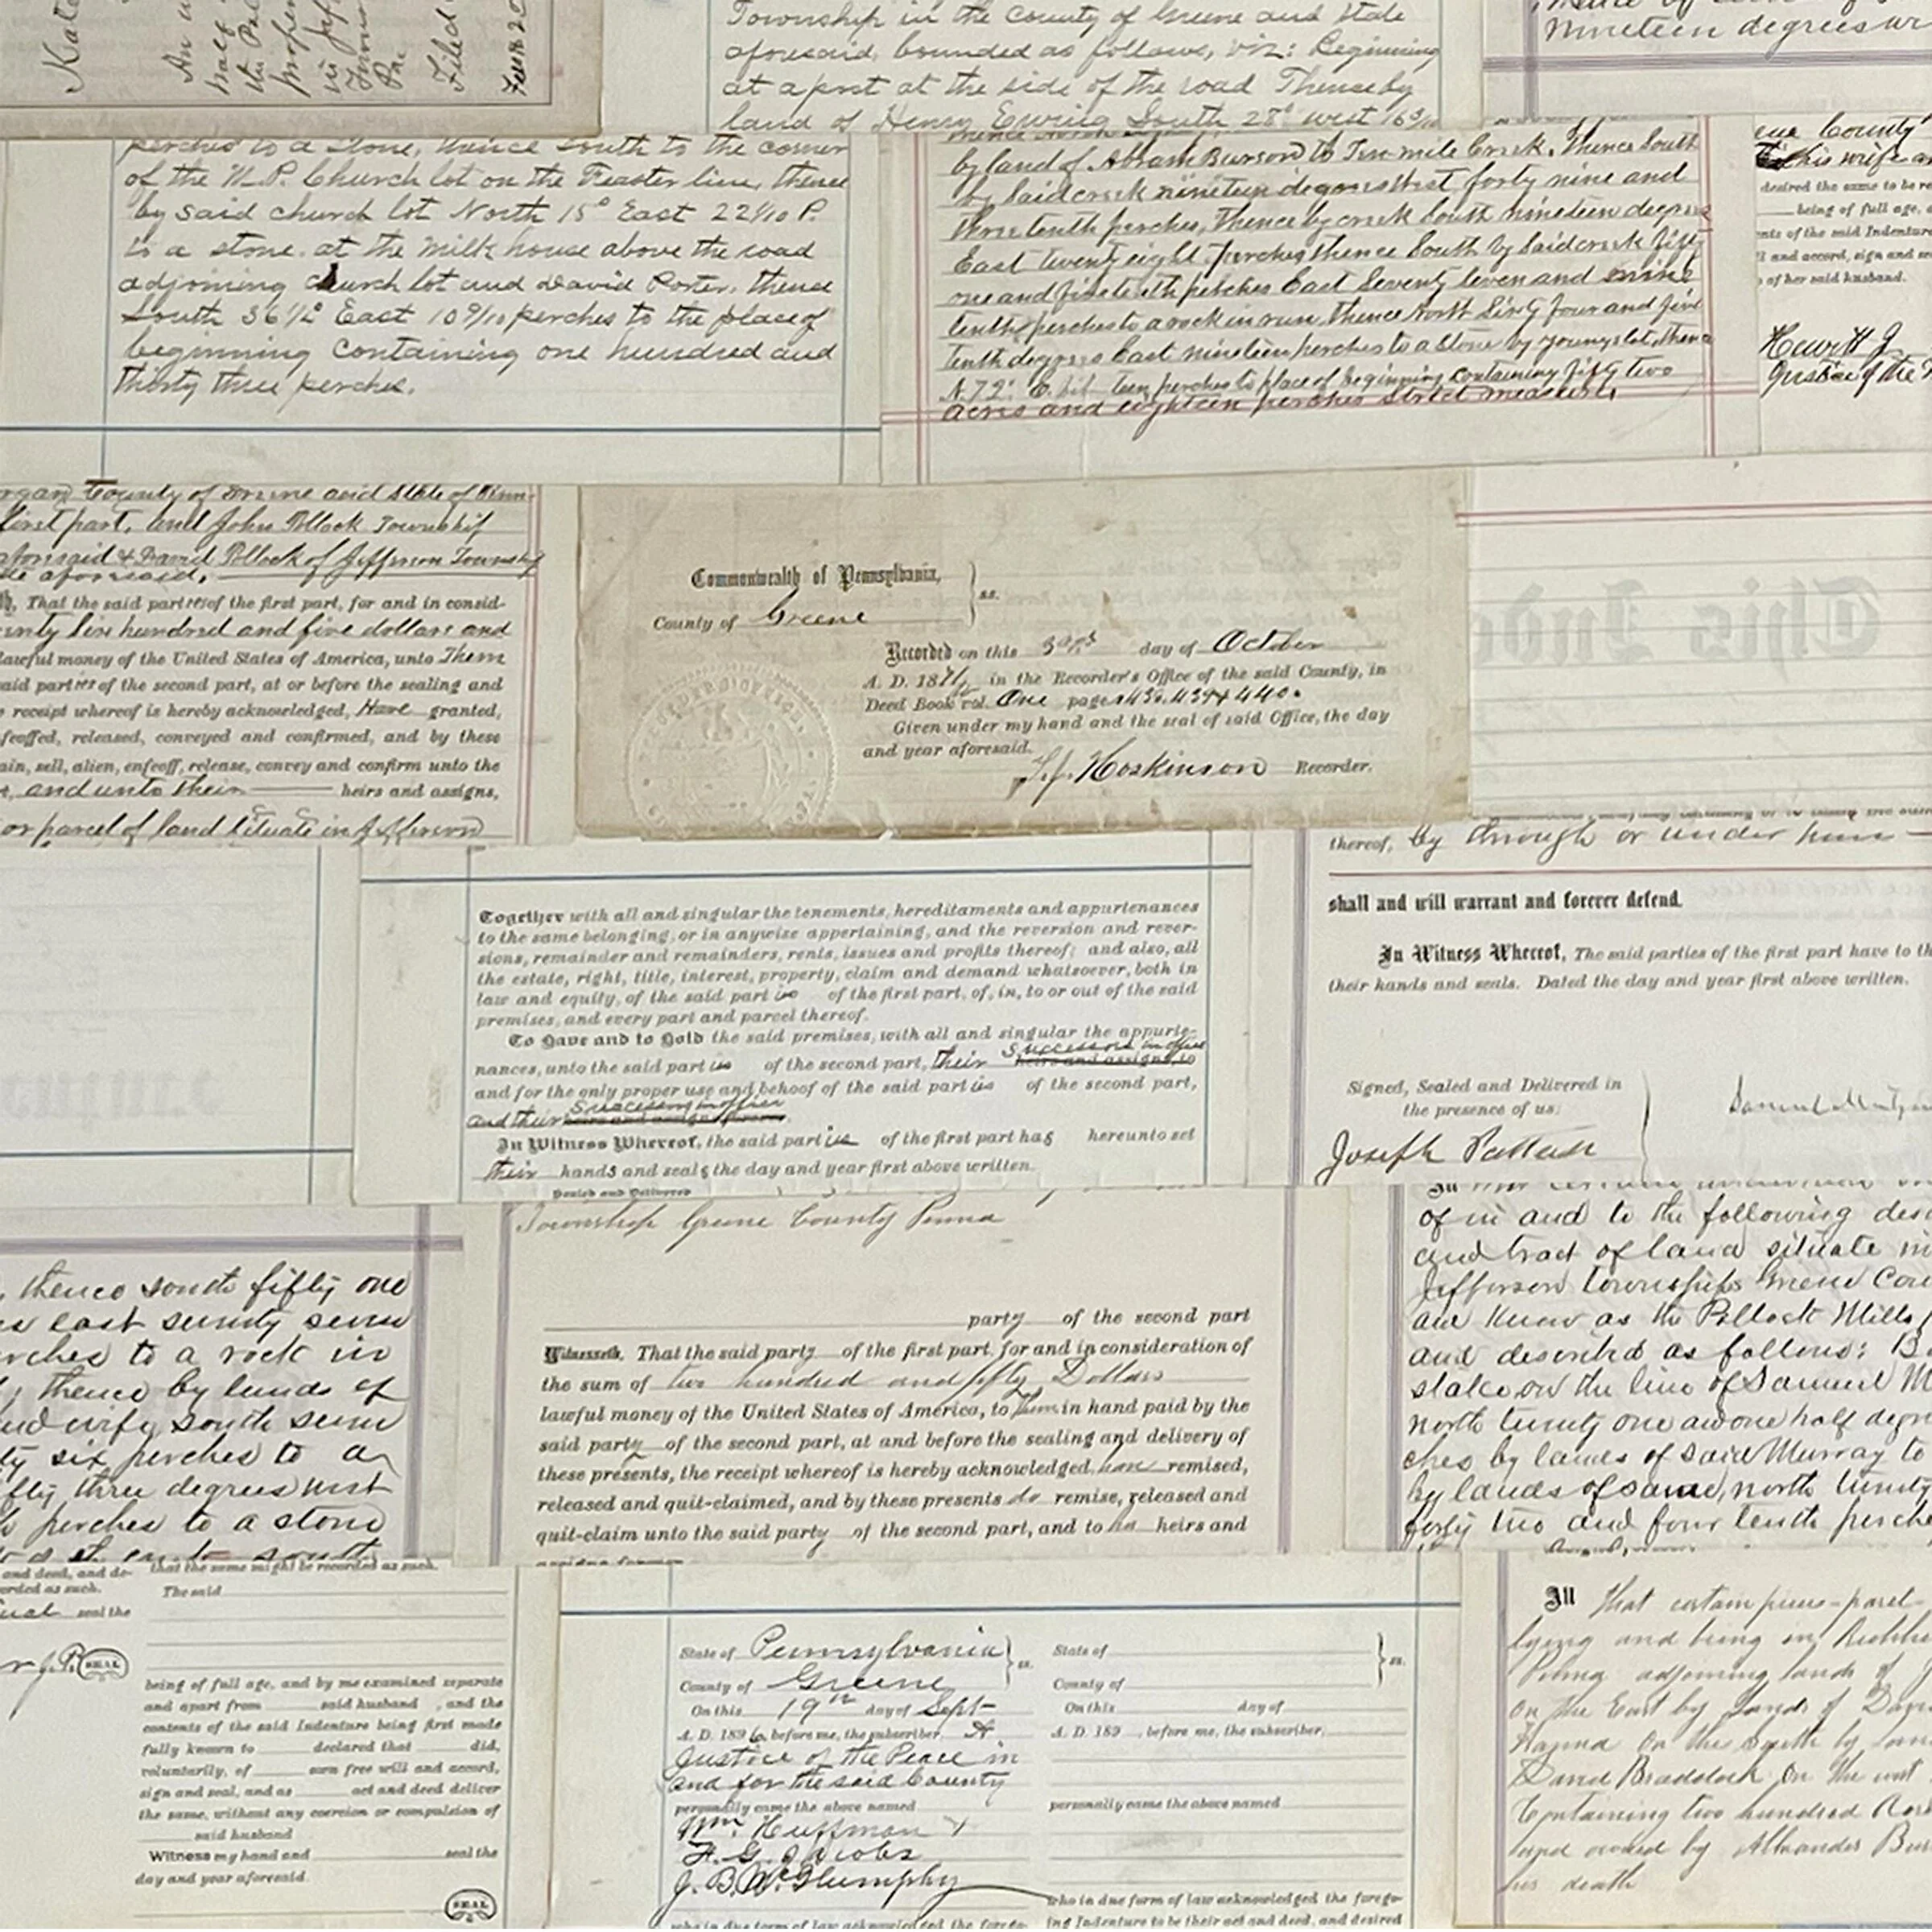 Kate
An
half
the
proper
in Jeff
Town
Pa
Filed
Township in the County of Greene and State
aforesaid, bounded as follows, viz: Beginning
at a post at the side of the road Thence by
land of Henry Ewing South 28° west 16
nineteen degrees
perches to a stone, thence South to the corner
of the M.P. Church lot on the Feaster line, thence
by said church lot North 15° East 22 4/10 P.
to a stone. at the milk house above the road
adjoining church lot and David Porter, thence
South 36 1/2° East 10 9/10 perches to the place of
beginning containing one hundred and
thirty three perches.
by land of Abram Burson to Ten mile Creek. Thence South
by Said creek nineteen degrees West forty nine and
three tenth perches, Thence by creek South nineteen degrees
East twenty eight perches thence South by Said creek fifty
one and five tenth perches East Seventy Seven and nine
tenth perches to a rock in run, thence North Sixty four and five
tenth degrees East nineteen perches to a stone by youngs lot, thence
N. 72° E. teen perches to place of beginning containing fifty two
acres and eighteen perches strict measure.
County
this wife an
desired the same to be re
being of full age, a
nts of the said Indenture
l and accord, sign and se
of her said husband.
Hewitt J
Justice of the
rgan County of Greene and State of Penn-
first part, and John Pollock Township
aforesaid & David Pollock of Jefferson Township
aforesaid.
h, That the said parties of the first part, for and in consid-
hundred and five dollars and
lawful money of the United States of America, unto Them
aid parties of the second part, at or before the sealing and
receipt whereof is hereby acknowledged, Have granted,
feoffed, released, conveyed and confirmed, and by these
ain, sell, alien, enfeoff, release, convey and confirm unto the
and unto their heirs and assigns,
or parcel of land Situate in Jefferson
Commonwealth of Pennsylvania,
County of Greene } ss.
Recorded on this 3rd day of October
A. D. 18 in the Recorder's Office of the said County, in
Deed Book vol. One pages 438. 439 & 440.
Given under my hand and the seal of said Office, the day
and year aforesaid.
Hoskinson Recorder.
This Inde
thereof, by through or under
shall and will warrant and forever defend.
In Witness Whereof, The said parties of the first part have to th
their hands and seals. Dated the day and year first above written.
Signed, Sealed and Delivered in
the presence of us:
Joseph
Together with all and singular the tenements, hereditaments and appurtenances
to the same belonging, or in anywise appertaining, and the reversion and rever-
sions, remainder and remainders, rents, issues and profits thereof; and also, all
the estate, right, title, interest, property, claim and demand whatsoever, both in
law and equity, of the said parties of the first part, of, in, to or out of the said
premises, and every part and parcel thereof.
To Have and to Hold the said premises, with all and singular the appurte-
Successors in office
nances, unto the said parties of the second part, their heirs and assigns, to
and for the only proper use and behoof of the said parties of the second part,
Successors in office
and their heirs and assigns forever.
In Witness Whereof, the said parties of the first part has hereunto set
their hands and seals the day and year first above written.
Sealed and Delivered
Township Greene County Penna
party of the second part
Witnesseth, That the said party of the first part, for and in consideration of
the sum of two hundred and fifty Dollars
lawful money of the United States of America, to them in hand paid by the
said party of the second part, at and before the sealing and delivery of
these presents, the receipt whereof is hereby acknowledged, have remised,
released and quit-claimed, and by these presents do remise, released and
quit-claim unto the said party of the second part, and to his heirs and
assigns forever
thence south fifty one
east seventy seven
rches to a rock in
thence by lands of
and wife south seven
ty six perches to a
fifty three degrees west
perches to a stone
of in and to the following desc
and tract of land situate in
Jefferson townships Greene Cou
and know as the Pollock Mills
and described as follows: B
stake on the line of Samuel M
north twenty one and one half degr
ches by lands of said Murray to
by lands of same, north twenty
forty two and four tenth perche
and deed, and de-
orded as such.
seal the
SEAL
that the same might be recorded as such.
The said
being of full age, and by me examined separate
and apart from said husband , and the
contents of the said Indenture being first made
fully known to declared that did,
voluntarily, of own free will and accord,
sign and seal, and as act and deed deliver
the same, without any coercion or compulsion of
said husband
Witness my hand and seal the
day and year aforesaid.
SEAL
State of Pennsylvania
County of Greene } ss.
On this 19th day of Sept
A. D. 1896, before me, the subscriber, A
Justice of the Peace in
and for the said County
personally came the above named
Wm. Huffman &
F. G. Jacobs
J. B. McGlumphy
who in due form of law acknowledged the forego-
State of
County of } ss.
On this day of
A. D. 189 , before me, the subscriber,
personally came the above named
who in due form of law acknowledged the forego-
ing Indenture to be their act and deed, and desired
All that certain piece-parcel
lying and being in Richhi
Penna adjoining lands of J
on the East by lands of Dav
Hagna On the South by lan
David Braddock On the west
Containing two hundred Acre
and owned by Alexander Bur
his death